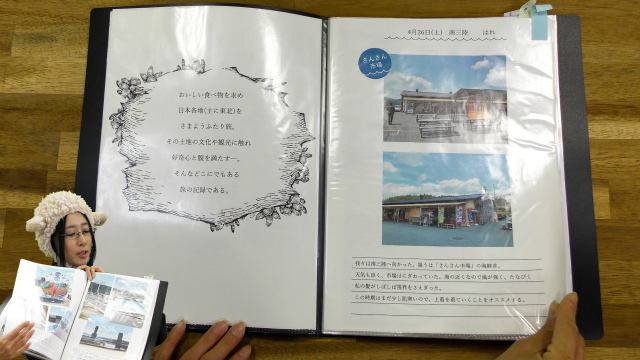 おいしい食べ物を求め
日本各地(主に東北)を
さまようふたり旅。
その土地の文化や観光に触れ
好奇心と腹を満たすー。
そんなどこにでもある
旅の記録である。
4月26日(土) 南三陸 はれ
さんさん
市場
我々は南三陸へ向かった。狙うは「さんさん市場」の海鮮丼。
天気も良く、市場はにぎわっていた。海の近くなので風が強く、たなびく
私の髪がしばしば視界をさえぎった。
この時期はまだ少し肌寒いので、上着を着ていくことをオススメする。